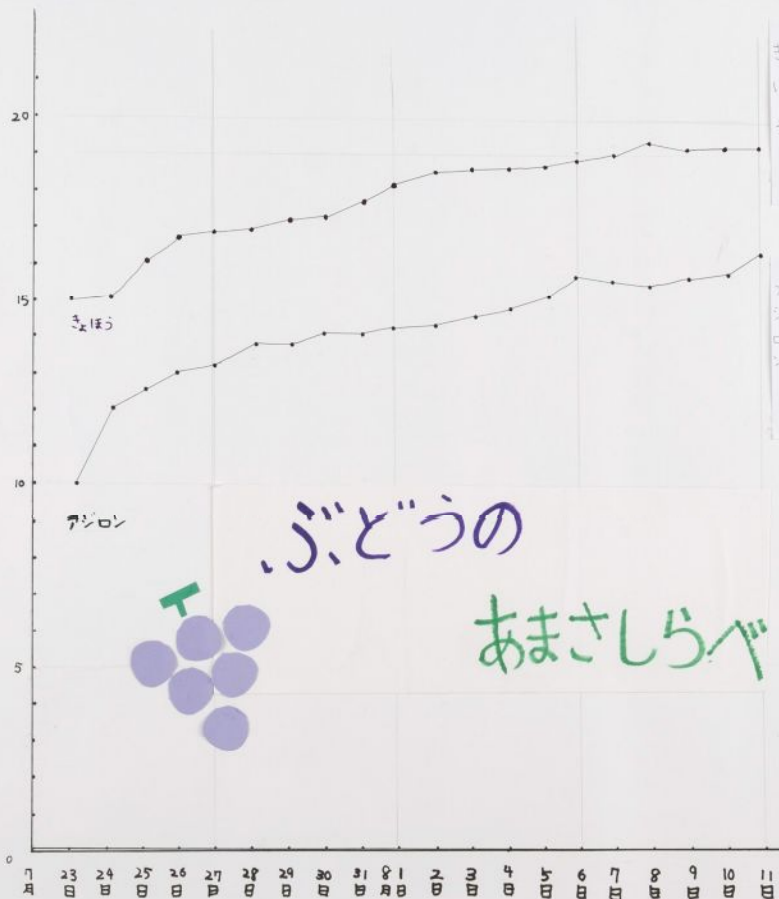 20
15
きょほう
10
アジロン
ぶどうの
あまさしらべ
5
0
7月 23日 24日 25日 26日 27日 28日 29日 30日 31日 8月1日 2日 3日 4日 5日 6日 7日 8日 9日 10日 11日